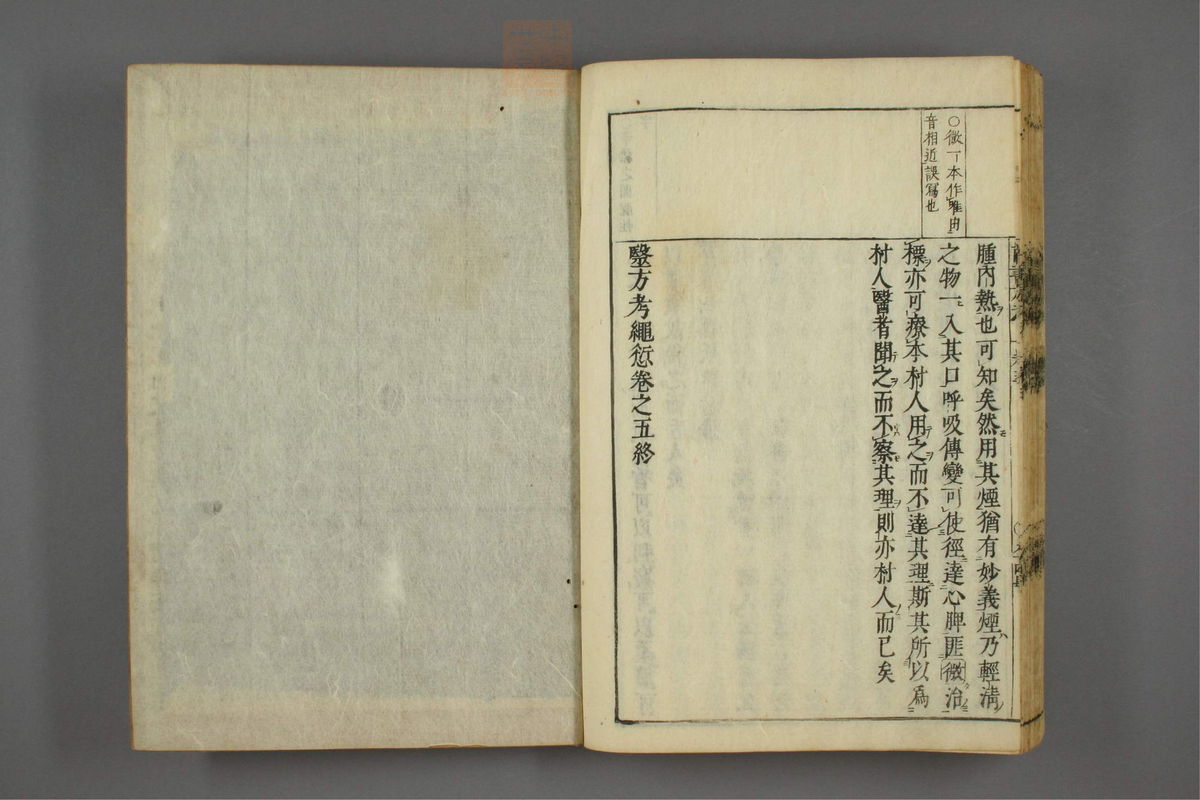 ○微一本作唯由
音相近誤寫也
腫內熱也可知矣然用其煙猶有妙義煙乃輕清
之物一入其口呼吸傳變可使徑達心脾匪微治
標亦可療本村人用之而不達其理斯其所以爲
村人醫者聞之而不察其理則亦村人而已矣
毉方考繩愆卷之五終